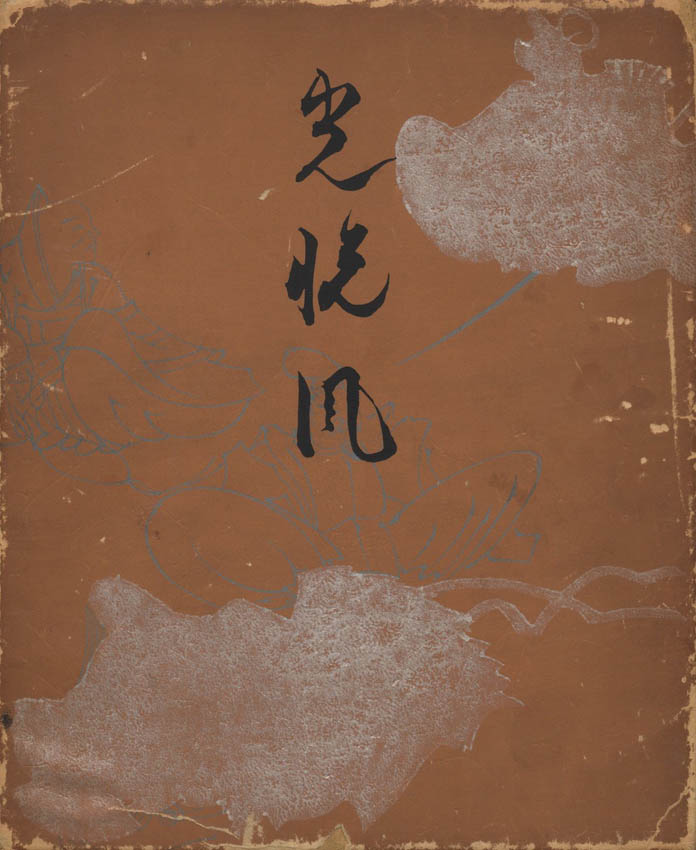 光悦風